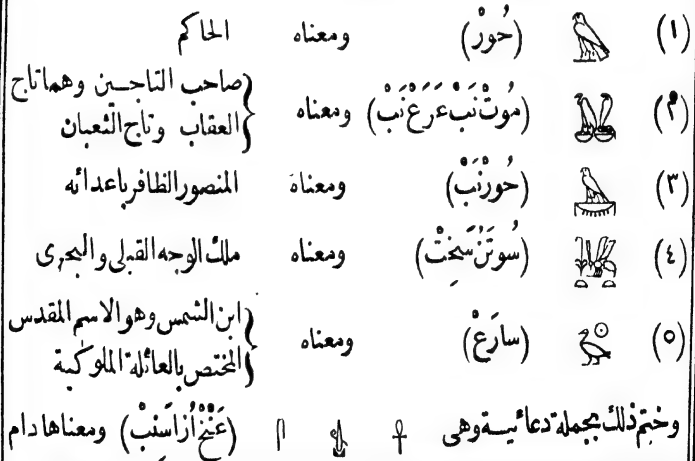 (١) 𓅃 (حُورْ) ومعناه الحاكم
(٢) (مُوتْ نَبْ عَرَعْ نَبْ) ومعناه {صاحب التاجين وهما تاج
العقاب وتاج الثعبان
(٣) (حُورْنَبْ) ومعناه المنصور الظافر باعدائه
(٤) (سُوتَنْ سَخِتْ) ومعناه ملك الوجه القبلى والبحرى
(٥) (سارَعْ) ومعناه {ابن الشمس وهو الاسم المقدس
المختص بالعائلة الملوكية
وختم ذلك بجملة دعائية وهى 𓋹 𓍑 𓋴 (عَنْخْ اُزَا سَنْبْ) ومعناها دام